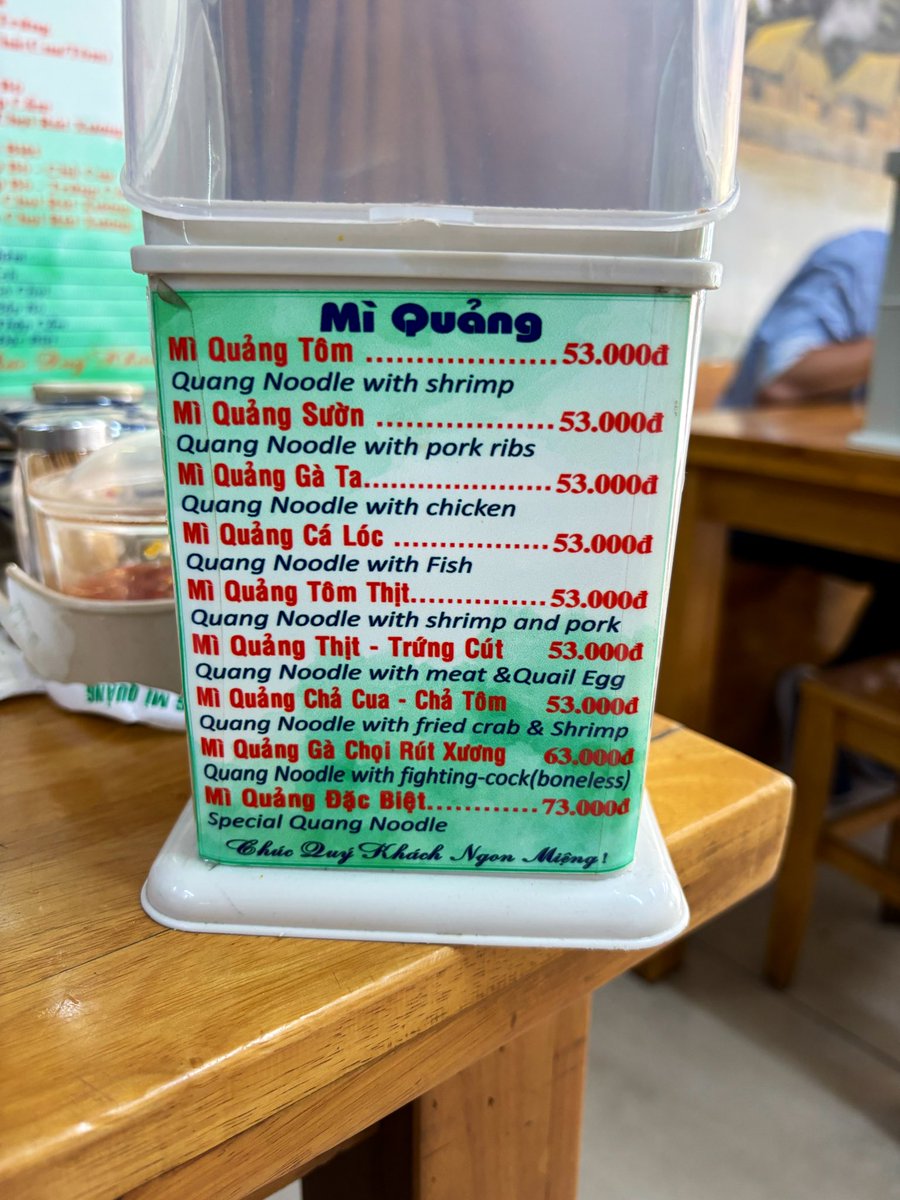 Mì Quảng
Mì Quảng Tôm ................... 53.000đ
Quang Noodle with shrimp
Mì Quảng Sườn .................. 53.000đ
Quang Noodle with pork ribs
Mì Quảng Gà Ta................... 53.000đ
Quang Noodle with chicken
Mì Quảng Cá Lóc ................ 53.000đ
Quang Noodle with Fish
Mì Quảng Tôm Thịt.............. 53.000đ
Quang Noodle with shrimp and pork
Mì Quảng Thịt - Trứng Cút 53.000đ
Quang Noodle with meat &Quail Egg
Mì Quảng Chả Cua - Chả Tôm 53.000đ
Quang Noodle with fried crab & Shrimp
Mì Quảng Gà Chọi Rút Xương 63.000đ
Quang Noodle with fighting-cock(boneless)
Mì Quảng Đặc Biệt............ 73.000đ
Special Quang Noodle
Chúc Quý Khách Ngon Miệng !
MÌ QUẢNG